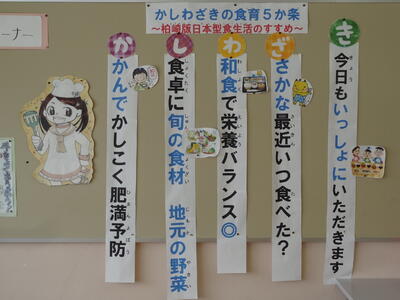 かしわざきの食育5か条
～柏崎版日本型食生活のすすめ～
ーナー
か
かんでかしこく肥満予防
し
食卓に旬の食材 地元の野菜
わ
和食で栄養バランス◎
ざ
さかな最近いつ食べた?
き
今日もいっしょにいただきます